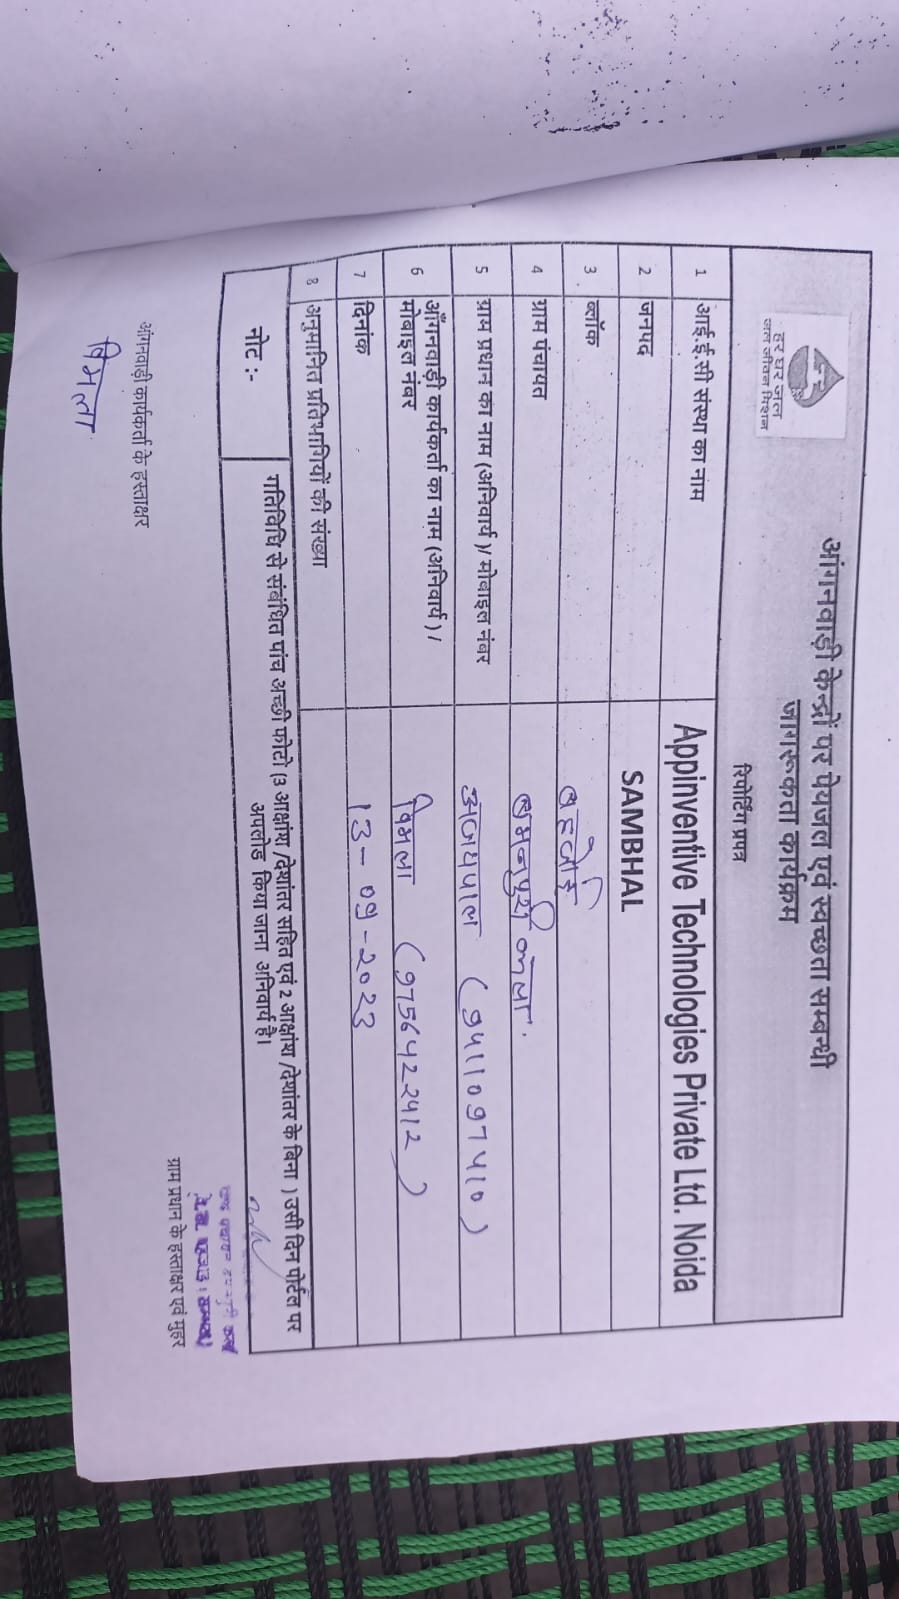 हर घर जल
जल जीवन मिशन
आंगनवाड़ी केन्द्रों पर पेयजल एवं स्वच्छता सम्बन्धी
जागरूकता कार्यक्रम
रिपोर्टिंग प्रपत्र
1 आई.ई.सी संस्था का नाम Appinventive Technologies Private Ltd. Noida
2 जनपद SAMBHAL
3. ब्लॉक बहजोई
4 ग्राम पंचायत कला
5 ग्राम प्रधान का नाम (अनिवार्य)/ मोबाइल नंबर अजयपाल (9411097410)
6 आँगनवाड़ी कार्यकर्ता का नाम (अनिवार्य) / विमला (9756422412)
मोबाइल नंबर
7 दिनांक 13-09-2023
8 अनुमानित प्रतिभागियों की संख्या
नोट :- गतिविधि से संबंधित पांच अच्छी फोटो (3 आक्षांश /देशांतर सहित एवं 2 आक्षांश /देशांतर के बिना ) उसी दिन पोर्टल पर
अपलोड किया जाना अनिवार्य है।
आंगनवाड़ी कार्यकर्ता के हस्ताक्षर
विमला
ग्राम प्रधान के हस्ताक्षर एवं मुहर